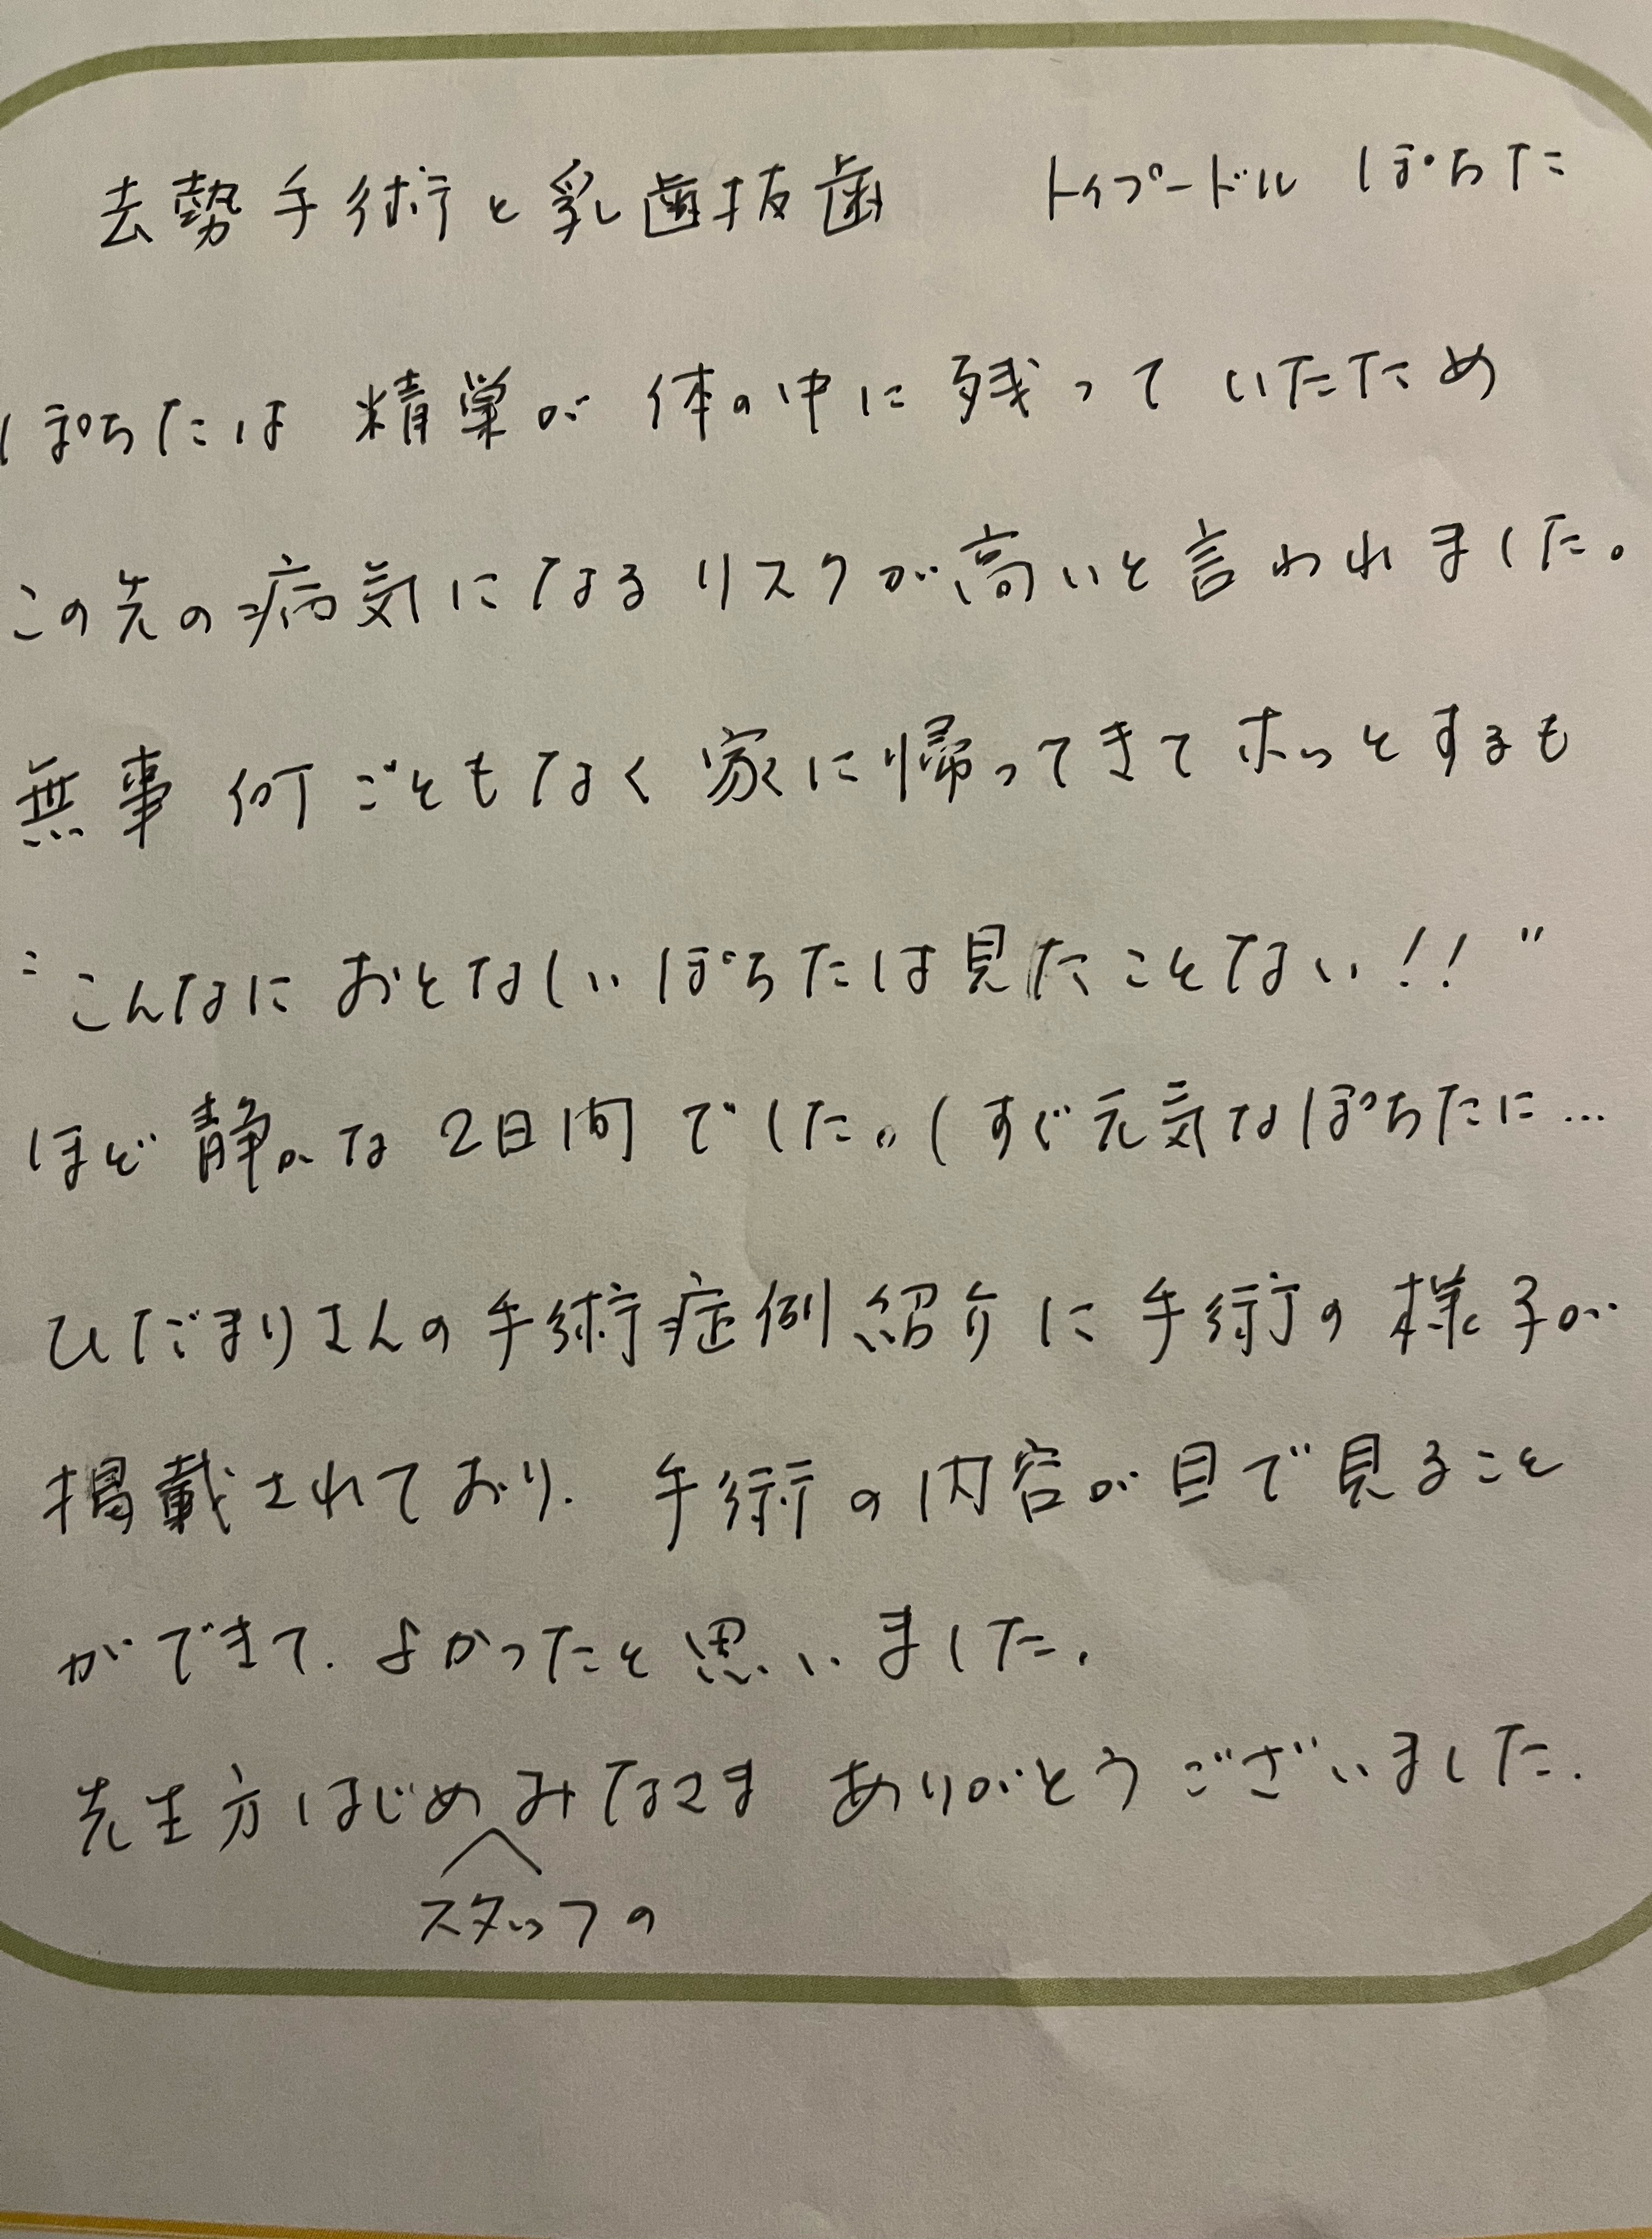 去勢手術と乳歯抜歯　トイプードル ぽちた
ぽちたは 精巣が 体の中に 残って いたため
この先の病気になる リスクが高いと言われました。
無事 何ごともなく 家に帰ってきて ホっとするも
"こんなに おとなしい ぽちたは見たことない!!"
ほど 静かな 2日間でした。(すぐ元気なぽちたに…
ひだまりさんの手術症例紹介に手術の様子が
掲載されており、手術の内容が目で見ること
ができて、よかったと思いました。
先生方はじめ みなさま ありがとうございました。
スタッフの